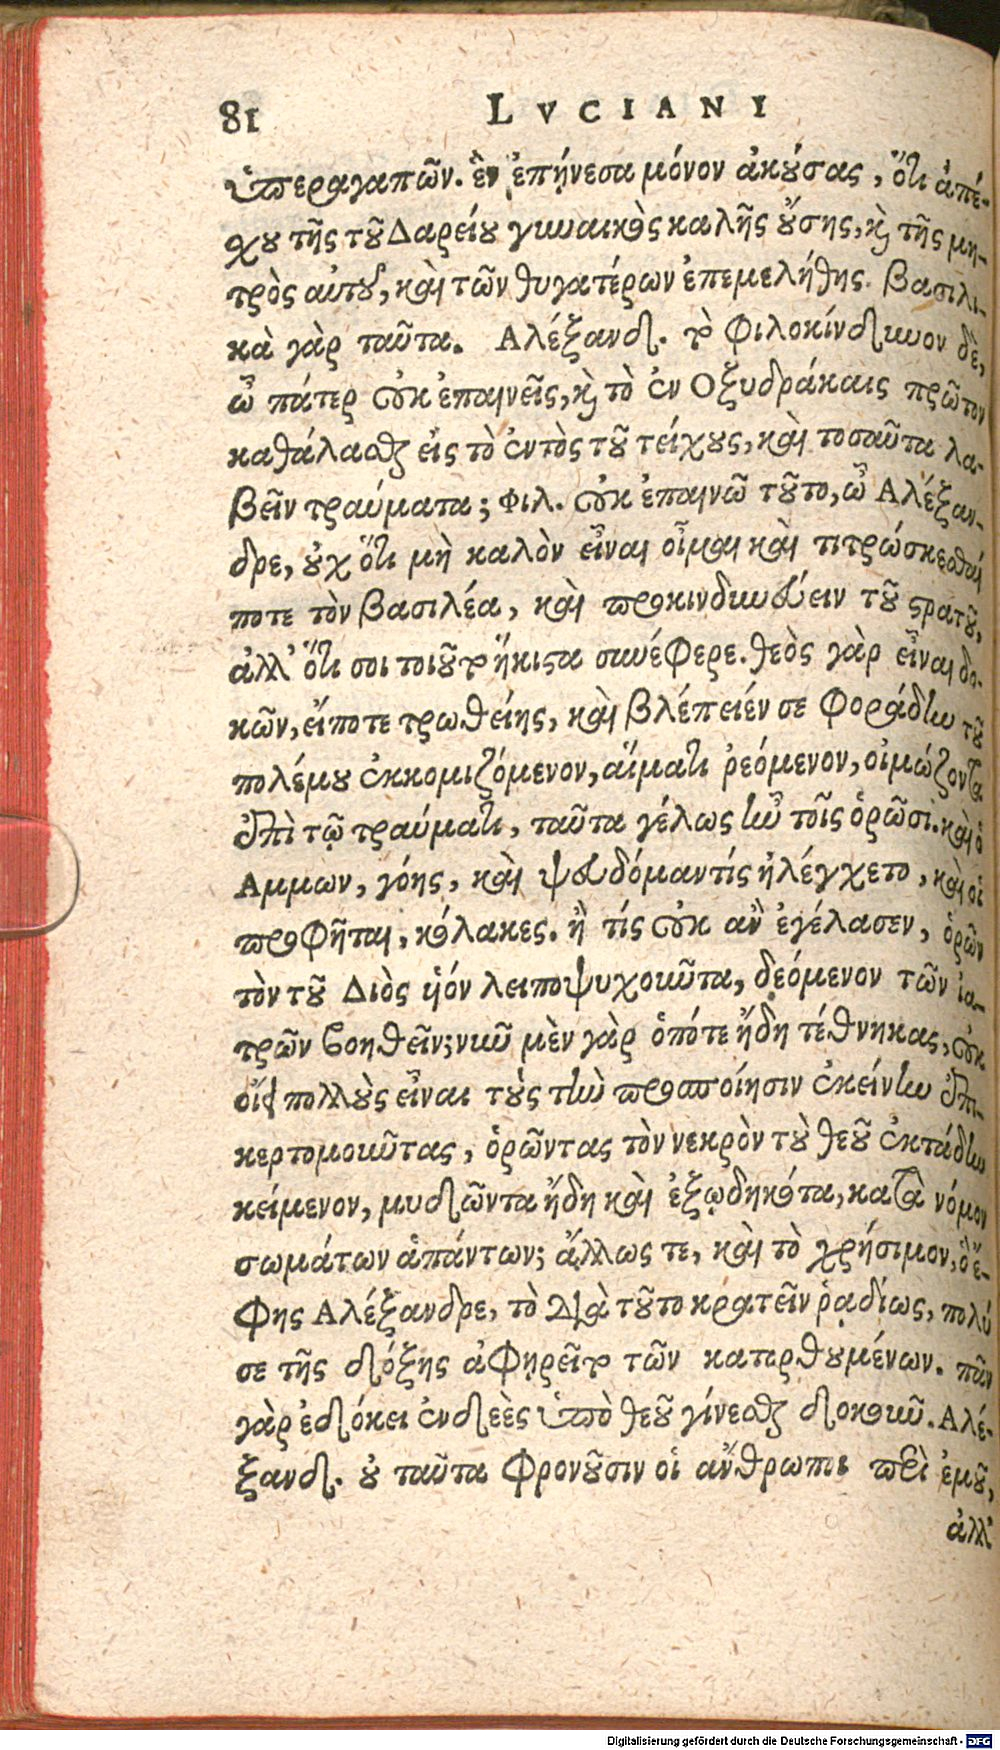 81 LVCIANI
ὑπεραγαπῶν. ἓν ἐπῄνεσα μόνον ἀκούσας, ὅτι ἀπέ-
χου τῆς τοῦ Δαρείου γυναικὸς καλῆς οὔσης, καὶ τῆς μη-
τρὸς αὐτοῦ, καὶ τῶν θυγατέρων ἐπεμελήθης. βασιλι-
κὰ γὰρ ταῦτα. Αλέξανδ. τὸ φιλοκίνδυνον δὲ,
ὦ πάτερ οὐκ ἐπαινεῖς, καὶ τὸ ἐν Οξυδράκαις πρῶτον
καθάλασθαι εἰς τὸ ἐντὸς τοῦ τείχους, καὶ τοσαῦτα λα-
βεῖν τραύματα; Φιλ. οὐκ ἐπαινῶ τοῦτο, ὦ Αλέξαν-
δρε, οὐχ ὅτι μὴ καλὸν εἶναι οἶμαι καὶ τιτρώσκεσθαί
ποτε τὸν βασιλέα, καὶ προκινδυνεύειν τοῦ στρατοῦ,
ἀλλ' ὅτι σοι τοιοῦτο ἥκιστα συνέφερε. θεὸς γὰρ εἶναι δο-
κῶν, εἴποτε τρωθείης, καὶ βλέπειέν σε φοράδην τοῦ
πολέμου ἐκκομιζόμενον, αἵματι ῥεόμενον, οἰμώζοντα
ἐπὶ τῷ τραύματι, ταῦτα γέλως ἦν τοῖς ὁρῶσι. καὶ ὁ
Αμμων, γόης, καὶ ψευδόμαντίς ἠλέγχετο, καὶ οἱ
προφῆται, κόλακες. ἢ τίς οὐκ ἂν ἐγέλασεν, ὁρῶν
τὸν τοῦ Διὸς ὑιόν λειποψυχοῦντα, δεόμενον τῶν ἰα-
τρῶν βοηθεῖν; νῦν μὲν γὰρ ὁπότε ἤδη τέθνηκας, οὐκ
οἴει πολλοὺς εἶναι τοὺς τὴν προσποίησιν ἐκείνην ἐπι-
κερτομοῦντας, ὁρῶντας τὸν νεκρὸν τοὺ θεοῦ ἐκτάδην
κείμενον, μυδῶντα ἤδη καὶ ἐξῳδηκότα, κατὰ νόμον
σωμάτων ἁπάντων; ἄλλως τε, καὶ τὸ χρήσιμον, ὃ ἔ-
φης Αλέξανδρε, τὸ διὰ τοῦτο κρατεῖν ῥᾳδίως, πολύ
σε τῆς δόξης ἀφῃρεῖτο τῶν κατορθουμένων. πᾶν
γὰρ ἐδόκει ἐνδεὲς ὑπὸ θεοῦ γίνεσθαι δοκοῦν. Αλέ-
ξανδ. οὐ ταῦτα φρονοῦσιν οἱ ἄνθρωποι περὶ ἐμοῦ,
ἀλλ'
Digitalisierung gefördert durch die Deutsche Forschungsgemeinschaft - DFG